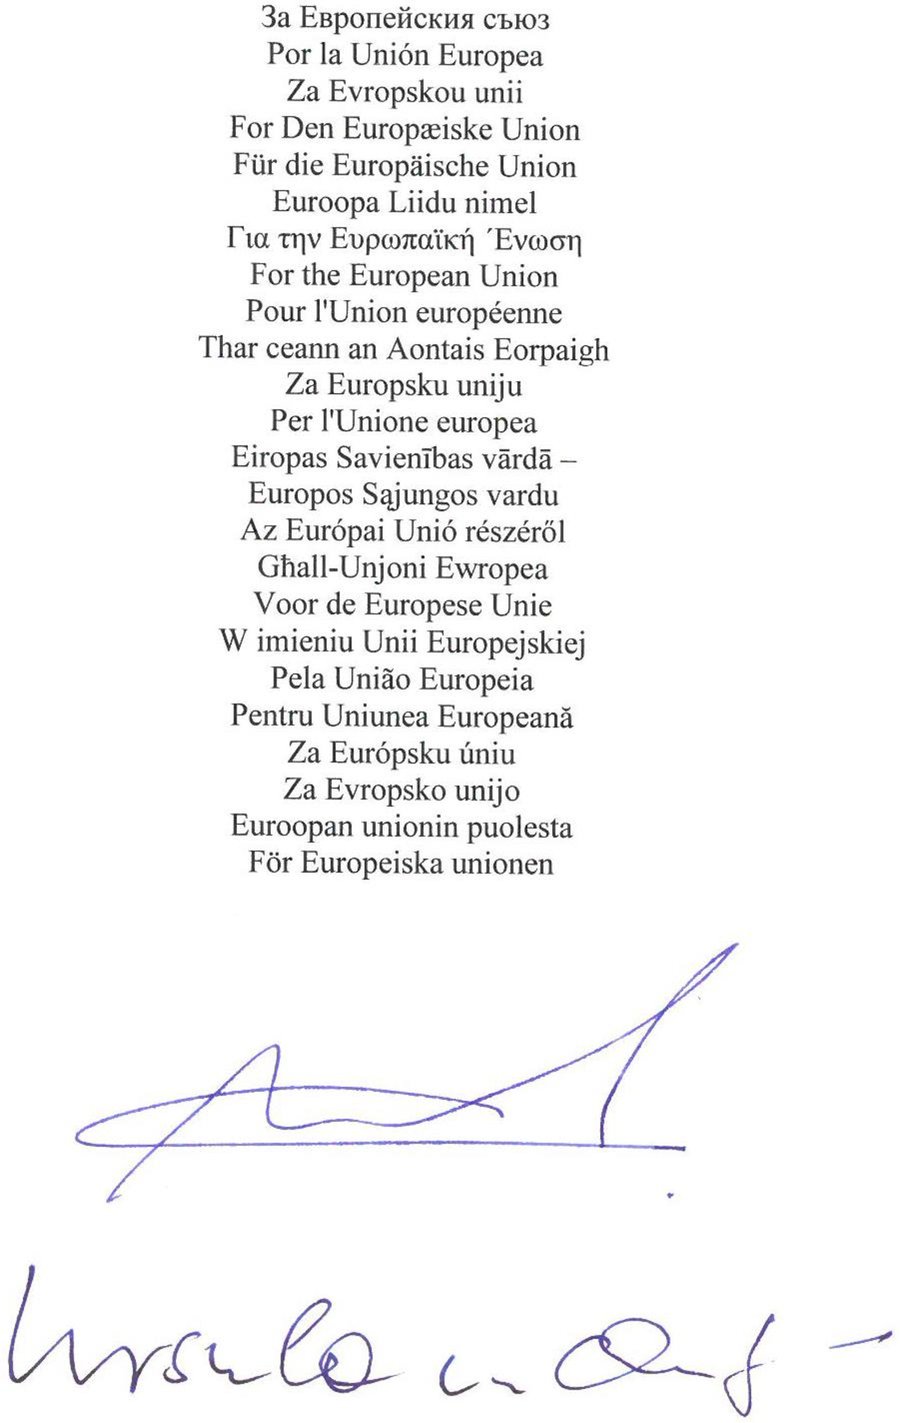 За Европейския съюз
Por la Unión Europea
Za Evropskou unii
For Den Europæiske Union
Für die Europäische Union
Euroopa Liidu nimel
Για την Ευρωπαϊκή Ένωση
For the European Union
Pour l'Union européenne
Thar ceann an Aontais Eorpaigh
Za Europsku uniju
Per l'Unione europea
Eiropas Savienības vārdā –
Europos Sąjungos vardu
Az Európai Unió részéről
Għall-Unjoni Ewropea
Voor de Europese Unie
W imieniu Unii Europejskiej
Pela União Europeia
Pentru Uniunea Europeană
Za Európsku úniu
Za Evropsko unijo
Euroopan unionin puolesta
För Europeiska unionen
Ursula